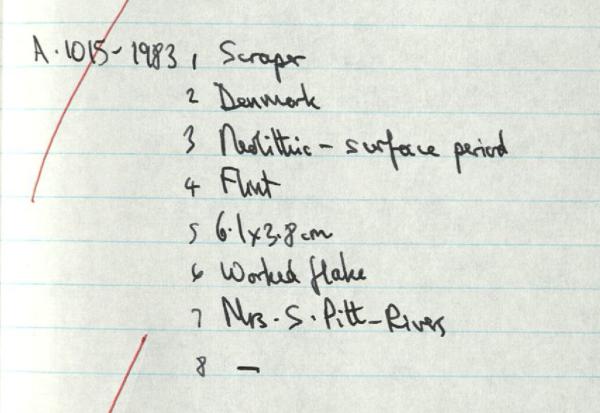 A.1015-1983 1 Scraper
2 Denmark
3 Neolithic - surface period
4 Flint
5 6.1x3.8cm
6 Worked flake
7 Mrs. S. Pitt-Rivers
8 —